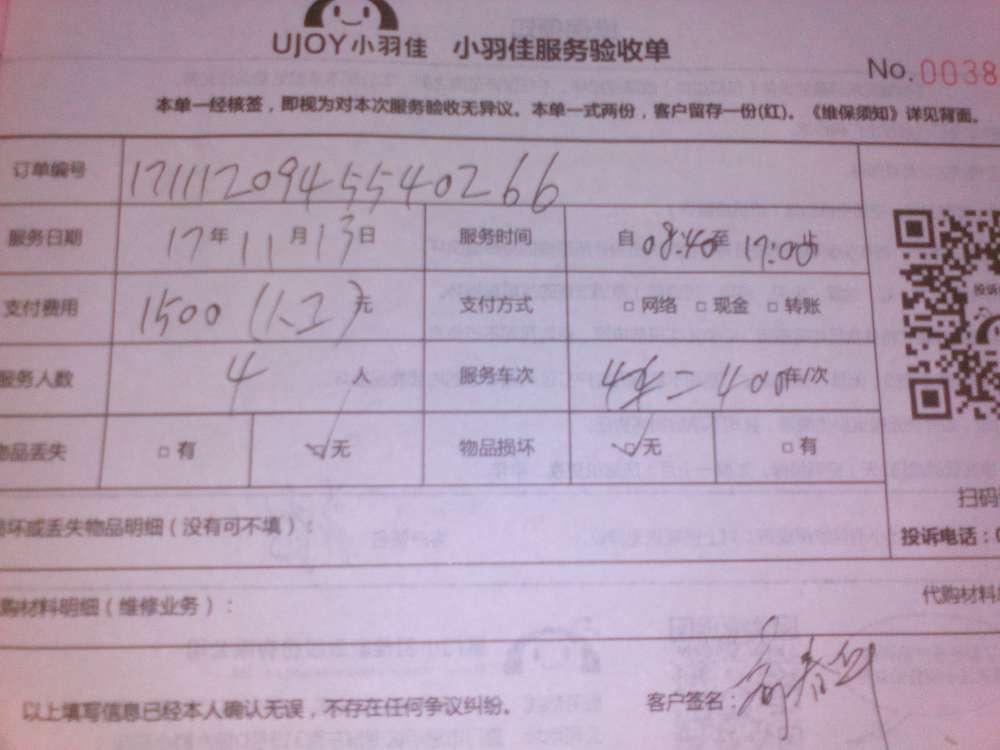 UJOY小羽佳 小羽佳服务验收单
No.0038
本单一经核签，即视为对本次服务验收无异议。本单一式两份，客户留存一份(红)。《维保须知》详见背面。
订单编号 17111209455540266
服务日期 17年11月13日 服务时间 自08:40至17:00止
支付费用 1500（人工）元 支付方式 □网络 □现金 □转账
服务人数 4 服务车次 车/次
物品丢失 □有 □无 物品损坏 □无 □有
损坏或丢失物品明细（没有可不填）：
扫码
投诉电话：
购材料明细（维修业务）： 代购材料
以上填写信息已经本人确认无误，不存在任何争议纠纷。 客户签名：